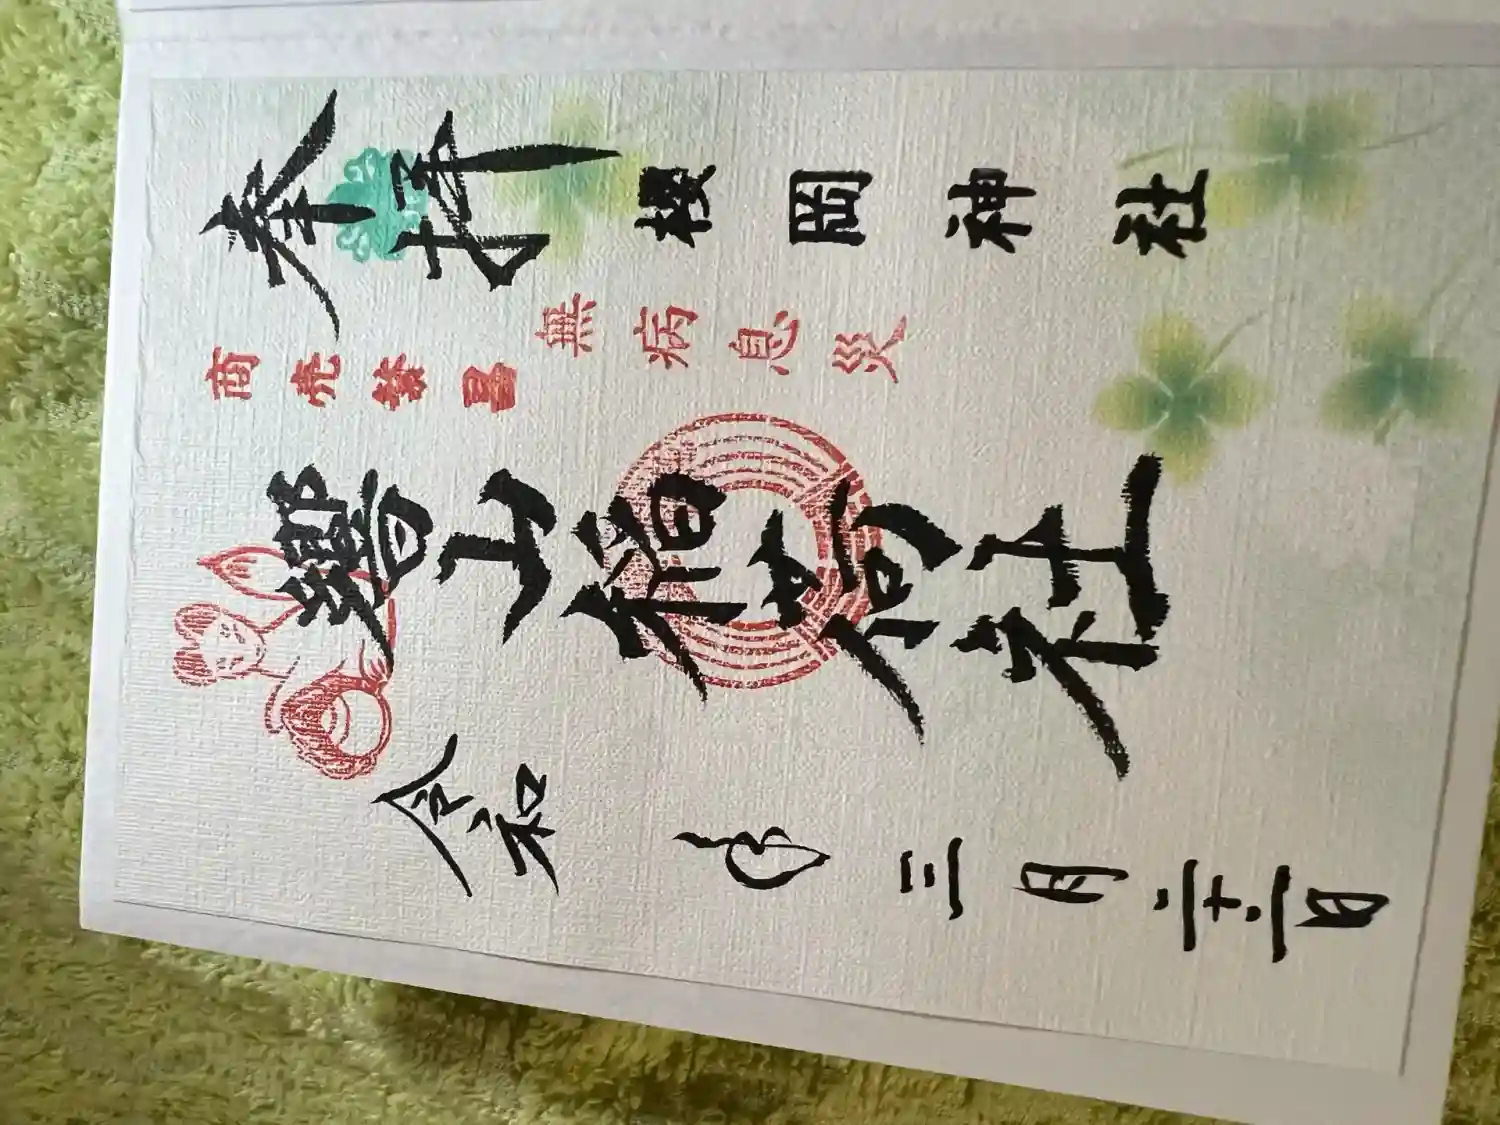 奉拝
櫻岡神社
商売繁昌
無病息災
響山稲荷社
令和 年三月二十二日